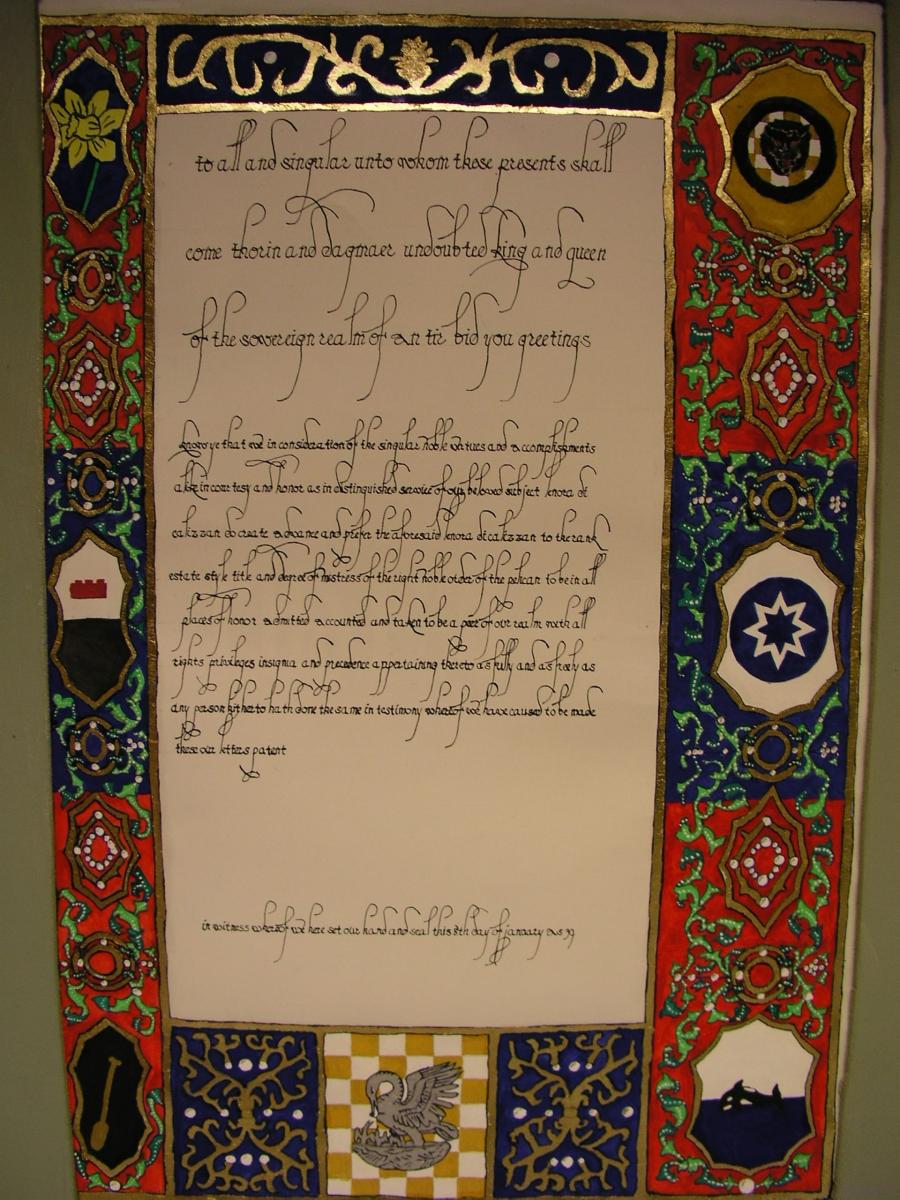 to all and singular unto whom these presents shall
come thorin and dagmaer undoubted king and queen
of the sovereign realm of an tir bid you greetings
know ye that we in consideration of the singular noble virtues and accomplishments
alike in courtesy and honor as in distinguished service of our beloved subject lenora di
calizzan do create advance and prefer the aforesaid lenora di calizzan to the rank
estate style title and degree of mistress of the right noble order of the pelican to be in all
places of honor admitted accounted and taken to be a peer of our realm with all
rights privileges insignia and precedence appertaining thereto as fully and as freely as
any person hitherto hath done the same in testimony whereof we have caused to be made
these our letters patent
in witness whereof we here set our hand and seal this 8th day of january as 39